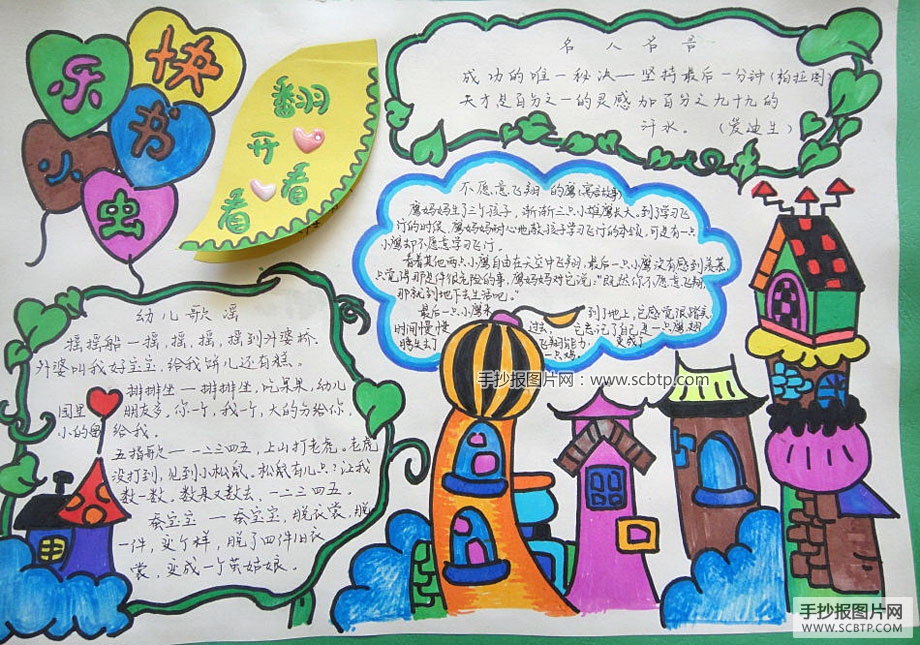 快乐
小书
虫
翻
开
看看
名人名言
成功的唯一秘决——坚持最后一分钟(柏拉图)
天才是百分之一的灵感加百分之九十九的
汗水。（爱迪生）
不愿意飞翔的鹰(寓言故事)
鹰妈妈生了三个孩子，渐渐三只小雄鹰长大。到了学习飞
行的时候，鹰妈妈耐心地教孩子学习飞行的本领，可是有一只
小鹰却不愿意学习飞行。
看着其他两只小鹰自由在天空中飞翔，最后一只小鹰没有感到羡慕
只觉得那是件很危险的事，鹰妈妈对它说："既然你不愿意飞翔
那就到地下去生活吧。"
最后一只小鹰来到了地上，它感觉很踏实
时间慢慢过去，它忘记了自己是一只鹰，翅
膀失去了飞翔能力，变成了
一只鸡。
幼儿歌谣
摇摇船——摇，摇，摇，摇到外婆桥，
外婆叫我好宝宝，给我饼儿还有糕。
排排坐——排排坐，吃果果，幼儿
园里朋友多，你一个，我一个，大的分给你，
小的留给我。
五指歌——一二三四五，上山打老虎。老虎
没打到，见到小松鼠。松鼠有几只？让我
数一数。数来又数去，一二三四五。
蚕宝宝——蚕宝宝，脱衣裳，脱
一件，变个样，脱了四件旧衣
裳，变成一个茧姑娘。
手抄报图片网：www.scbtp.com
手抄报图片网
WWW.SCBTP.COM